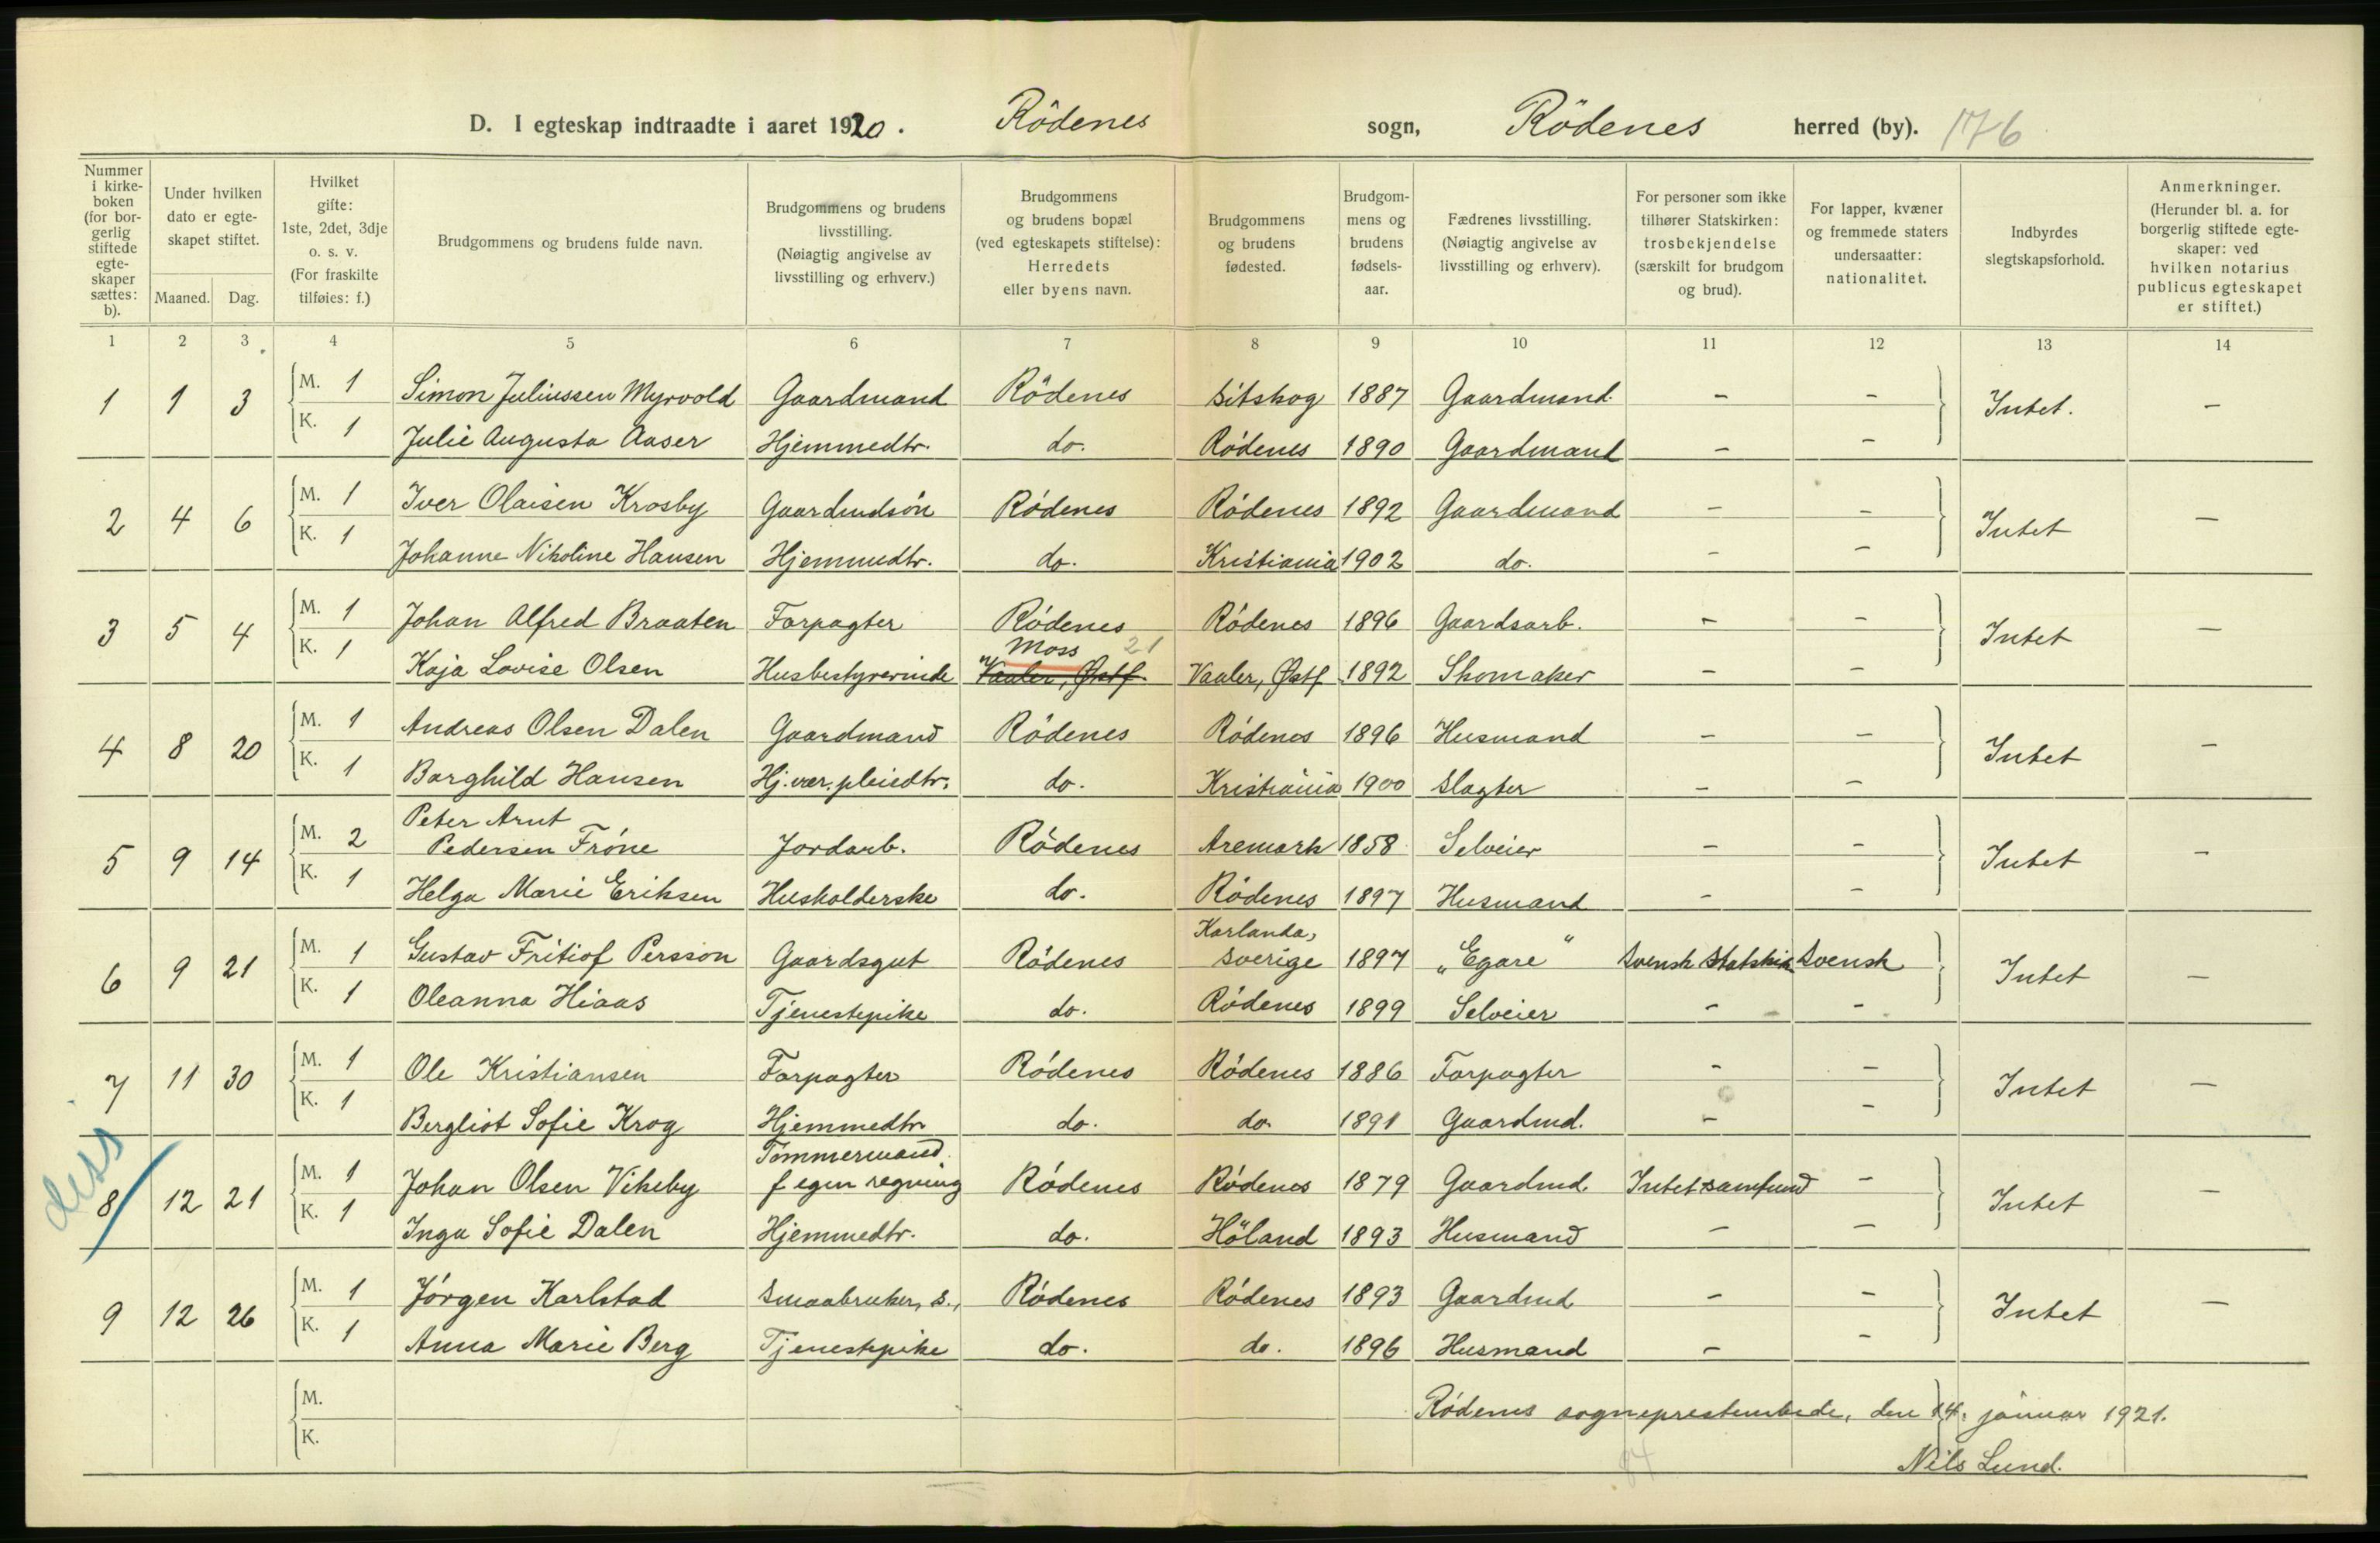 D. I egteskap indtraadte i aaret 1920. Rödenes sogn, Rödenes herred (by). 176
Nummer i kirkeboken (for borgerlig stiftede egteskaper sættes: b).
Under hvilken dato er egteskapet stiftet.
Maaned. Dag.
Hvilket gifte: 1ste, 2det, 3dje o. s. v. (For fraskilte tilføies: f.)
Brudgommens og brudens fulde navn.
Brudgommens og brudens livsstilling. (Nøiagtig angivelse av livsstilling og erhverv.)
Brudgommens og brudens bopæl (ved egteskapets stiftelse): Herredets eller byens navn.
Brudgommens og brudens fødested.
Brudgommens og brudens fødselsaar.
Fædrenes livsstilling. (Nøiagtig angivelse av livsstilling og erhverv).
For personer som ikke tilhører Statskirken: trosbekjendelse (særskilt for brudgom og brud).
For lapper, kvæner og fremmede staters undersaatter: nationalitet.
Indbyrdes slegtskapsforhold.
Anmerkninger. (Herunder bl. a. for borgerlig stiftede egteskaper: ved hvilken notarius publicus egteskapet er stiftet.)
1 2 3 4 5 6 7 8 9 10 11 12 13 14
1 1 3 M. 1 Simon Juliussen Myrvold Gaardmand Rödenes Sitskog 1887 Gaardmand. - - Intet. -
K. 1 Julie Augusta Aaser Hjemmedtr. do. Rödenes 1890 Gaardmand - -
2 4 6 M. 1 Iver Olaisen Krosby Gaardmdsön Rödenes Rödenes 1892 Gaardmand - - Intet -
K. 1 Johanne Nikoline Hansen Hjemmedtr. do. Kristiania 1902 do. - -
3 5 4 M. 1 Johan Alfred Braaten Forpagter Rödenes Rödenes 1896 Gaardsarb. - - Intet -
Moss 21
K. 1 Kaja Lovise Olsen Husbestyrerinde Vaaler, Østf. Vaaler, Østf 1892 Skomaker - -
4 8 20 M. 1 Andreas Olsen Dalen Gaardmand Rödenes Rödenes 1896 Husmand - - Intet -
K. 1 Borghild Hansen Hj.vær. pleiedtr. do. Kristiania 1900 Slagter - -
Peter Arnt
5 9 14 M. 2 Pedersen Fröne Jordarb. Rödenes Aremark 1858 Selveier - - Intet -
K. 1 Helga Marie Eriksen Husholderske do. Rödenes 1897 Husmand - -
Karlanda,
6 9 21 M. 1 Gustav Fritiof Persson Gaardsgut Rödenes Sverige 1897 „Egare" Svensk Statskirk Svensk Intet -
K. 1 Oleanna Hiaas Tjenestepike do. Rödenes 1899 Selveier - -
7 11 30 M. 1 Ole Kristiansen Forpagter Rödenes Rödenes 1886 Forpagter - - Intet -
K. 1 Bergliot Sofie Krog Hjemmedtr do. do. 1891 Gaardmd. - -
diss
Tømmermand
8 12 21 M. 1 Johan Olsen Vikeby f egen regning Rödenes Rödenes 1879 Gaardmd. Intet samfund - Intet -
K. 1 Inga Sofie Dalen Hjemmedtr. do. Höland 1893 Husmand - -
9 12 26 M. 1 Jörgen Karlstad Smaabruker, s., Rödenes Rödenes 1893 Gaardmd - - Intet -
K. 1 Anna Marie Berg Tjenestepike do. do. 1896 Husmand - -
M.
K.
Rödenes sogneprestembede, den 14. januar 1921.
Nils Lund.